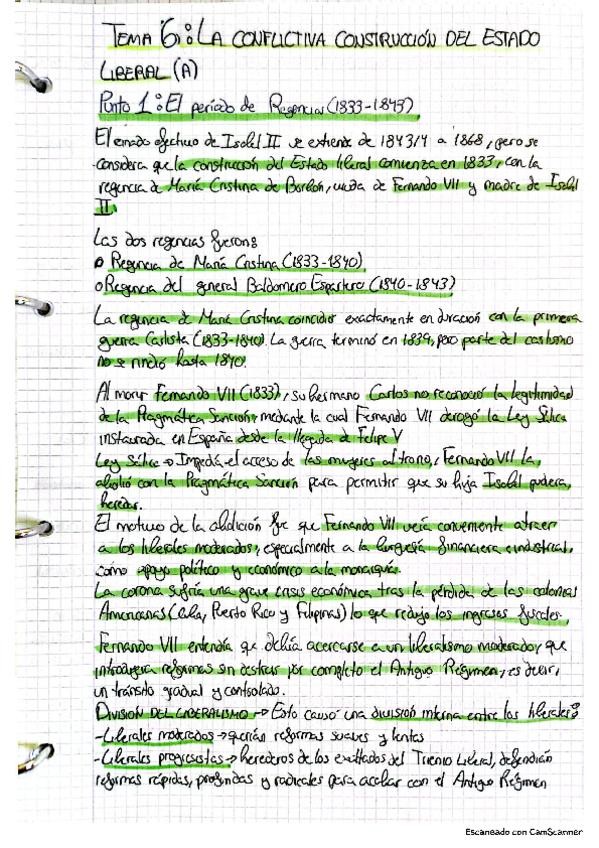 TEMA 6: LA CONFLICTIVA CONSTRUCCIÓN DEL ESTADO
LIBERAL (A)
Punto 1: El período de Regencias (1833-1843)
El reinado efectivo de Isabel II se extiende de 1843/4 a 1868, pero se
considera que la construcción del Estado liberal comienza en 1833, con la
regencia de María Cristina de Borbón, viuda de Fernando VII y madre de Isabel
II.
Las dos regencias fueron:
• Regencia de María Cristina (1833-1840)
• Regencia del general Baldomero Espartero (1840-1843)
La regencia de María Cristina coincidió exactamente en duración con la primera
guerra Carlista (1833-1840). La guerra terminó en 1839, pero parte del carlismo
no se rindió hasta 1840.
Al morir Fernando VII (1833), su hermano Carlos no reconoció la legitimidad
de la Pragmática Sanción, mediante la cual Fernando VII derogó la Ley Sálica
instaurada en España desde la llegada de Felipe V
Ley Sálica → Impedía el acceso de las mujeres al trono, Fernando VII la
abolió con la Pragmática Sanción para permitir que su hija Isabel pudiera
heredar.
El motivo de la abolición fue que Fernando VII veía conveniente atraer
a los liberales moderados, especialmente a la burguesía financiera e industrial,
como apoyo político y económico a la monarquía.
La corona sufría una grave crisis económica tras la pérdida de las colonias
Americanas (Cuba, Puerto Rico y Filipinas) lo que redujo los ingresos fiscales.
Fernando VII entendía que debía acercarse a un liberalismo moderador, que
introdujera reformas sin destruir por completo el Antiguo Régimen, es decir,
un tránsito gradual y controlado.
DIVISIÓN DEL LIBERALISMO → Esto causó una división interna entre los liberales:
-Liberales moderados → querían reformas suaves y lentas
-Liberales progresistas → herederos de los exaltados del Trienio Liberal, defendían
reformas rápidas, profundas y radicales para acabar con el Antiguo Régimen
Escaneado con CamScanner